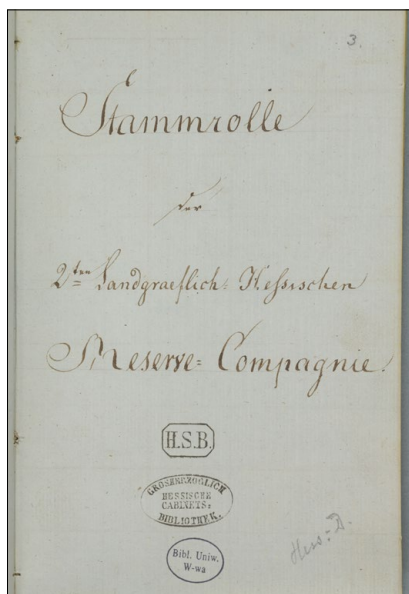 3.
Stammrolle
der
2ten Landgraeflich Hessischen
Reserve= Compagnie.
H.S.B.
GROSHERZOGLICH
HESSISCHE
CABINETS=
BIBLIOTHEK.
Bibl. Uniw.
W-wa
Hess.=D.